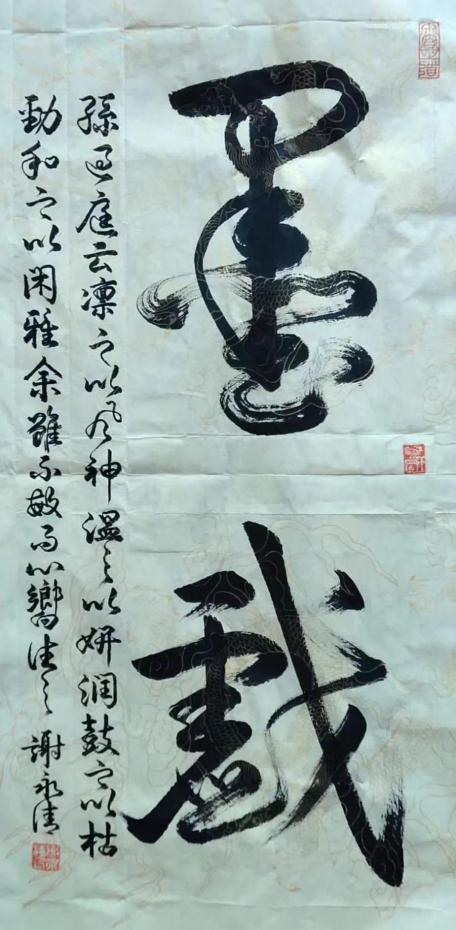 墨戲
孫過庭云凛之以風神溫之以妍润鼓之以枯
勁和之以闲雅余雖不敏而心嚮往之 謝永清